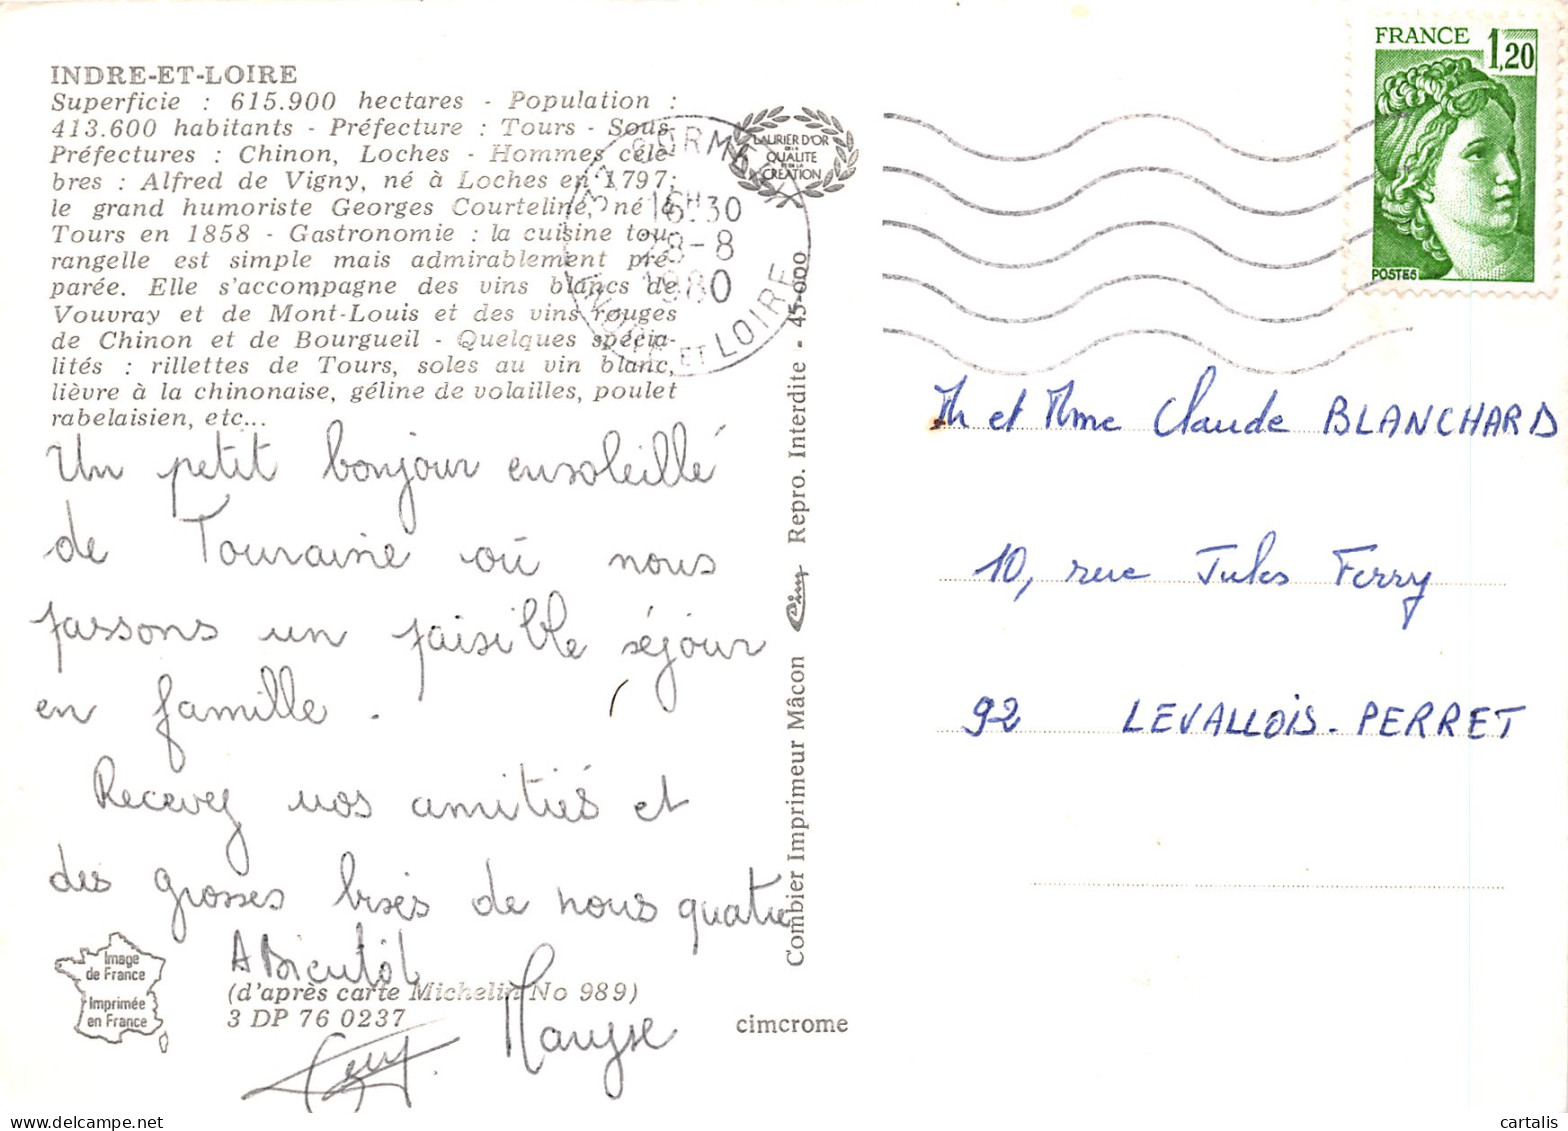 INDRE-ET-LOIRE
Superficie : 615.900 hectares - Population :
413.600 habitants - Préfecture : Tours - Sous-
Préfectures : Chinon, Loches - Hommes célè-
bres : Alfred de Vigny, né à Loches en 1797;
le grand humoriste Georges Courteline, né à
Tours en 1858 - Gastronomie : la cuisine tou-
rangelle est simple mais admirablement pré-
parée. Elle s'accompagne des vins blancs de
Vouvray et de Mont-Louis et des vins rouges
de Chinon et de Bourgueil - Quelques spécia-
lités : rillettes de Tours, soles au vin blanc,
lièvre à la chinonaise, géline de volailles, poulet
rabelaisien, etc...
Un petit bonjour ensoleillé
de Touraine où nous
passons un paisible séjour
en famille.
Recevez nos amitiés et
des grosses bises de nous quatre
A Bientôt
Maryse
(d'après carte Michelin No 989)
3 DP 76 0237
Image
de France
Imprimée
en France
cimcrome
LAURIER D'OR
DE LA
QUALITE
ET DE LA
CREATION
16H30
28-8
1980
INDRE ET LOIRE
Combier Imprimeur Mâcon Cim Repro. Interdite - 45-000
FRANCE 1,20
POSTES
M et Mme Claude BLANCHARD
10, rue Jules Ferry
92 LEVALLOIS-PERRET
cartalis